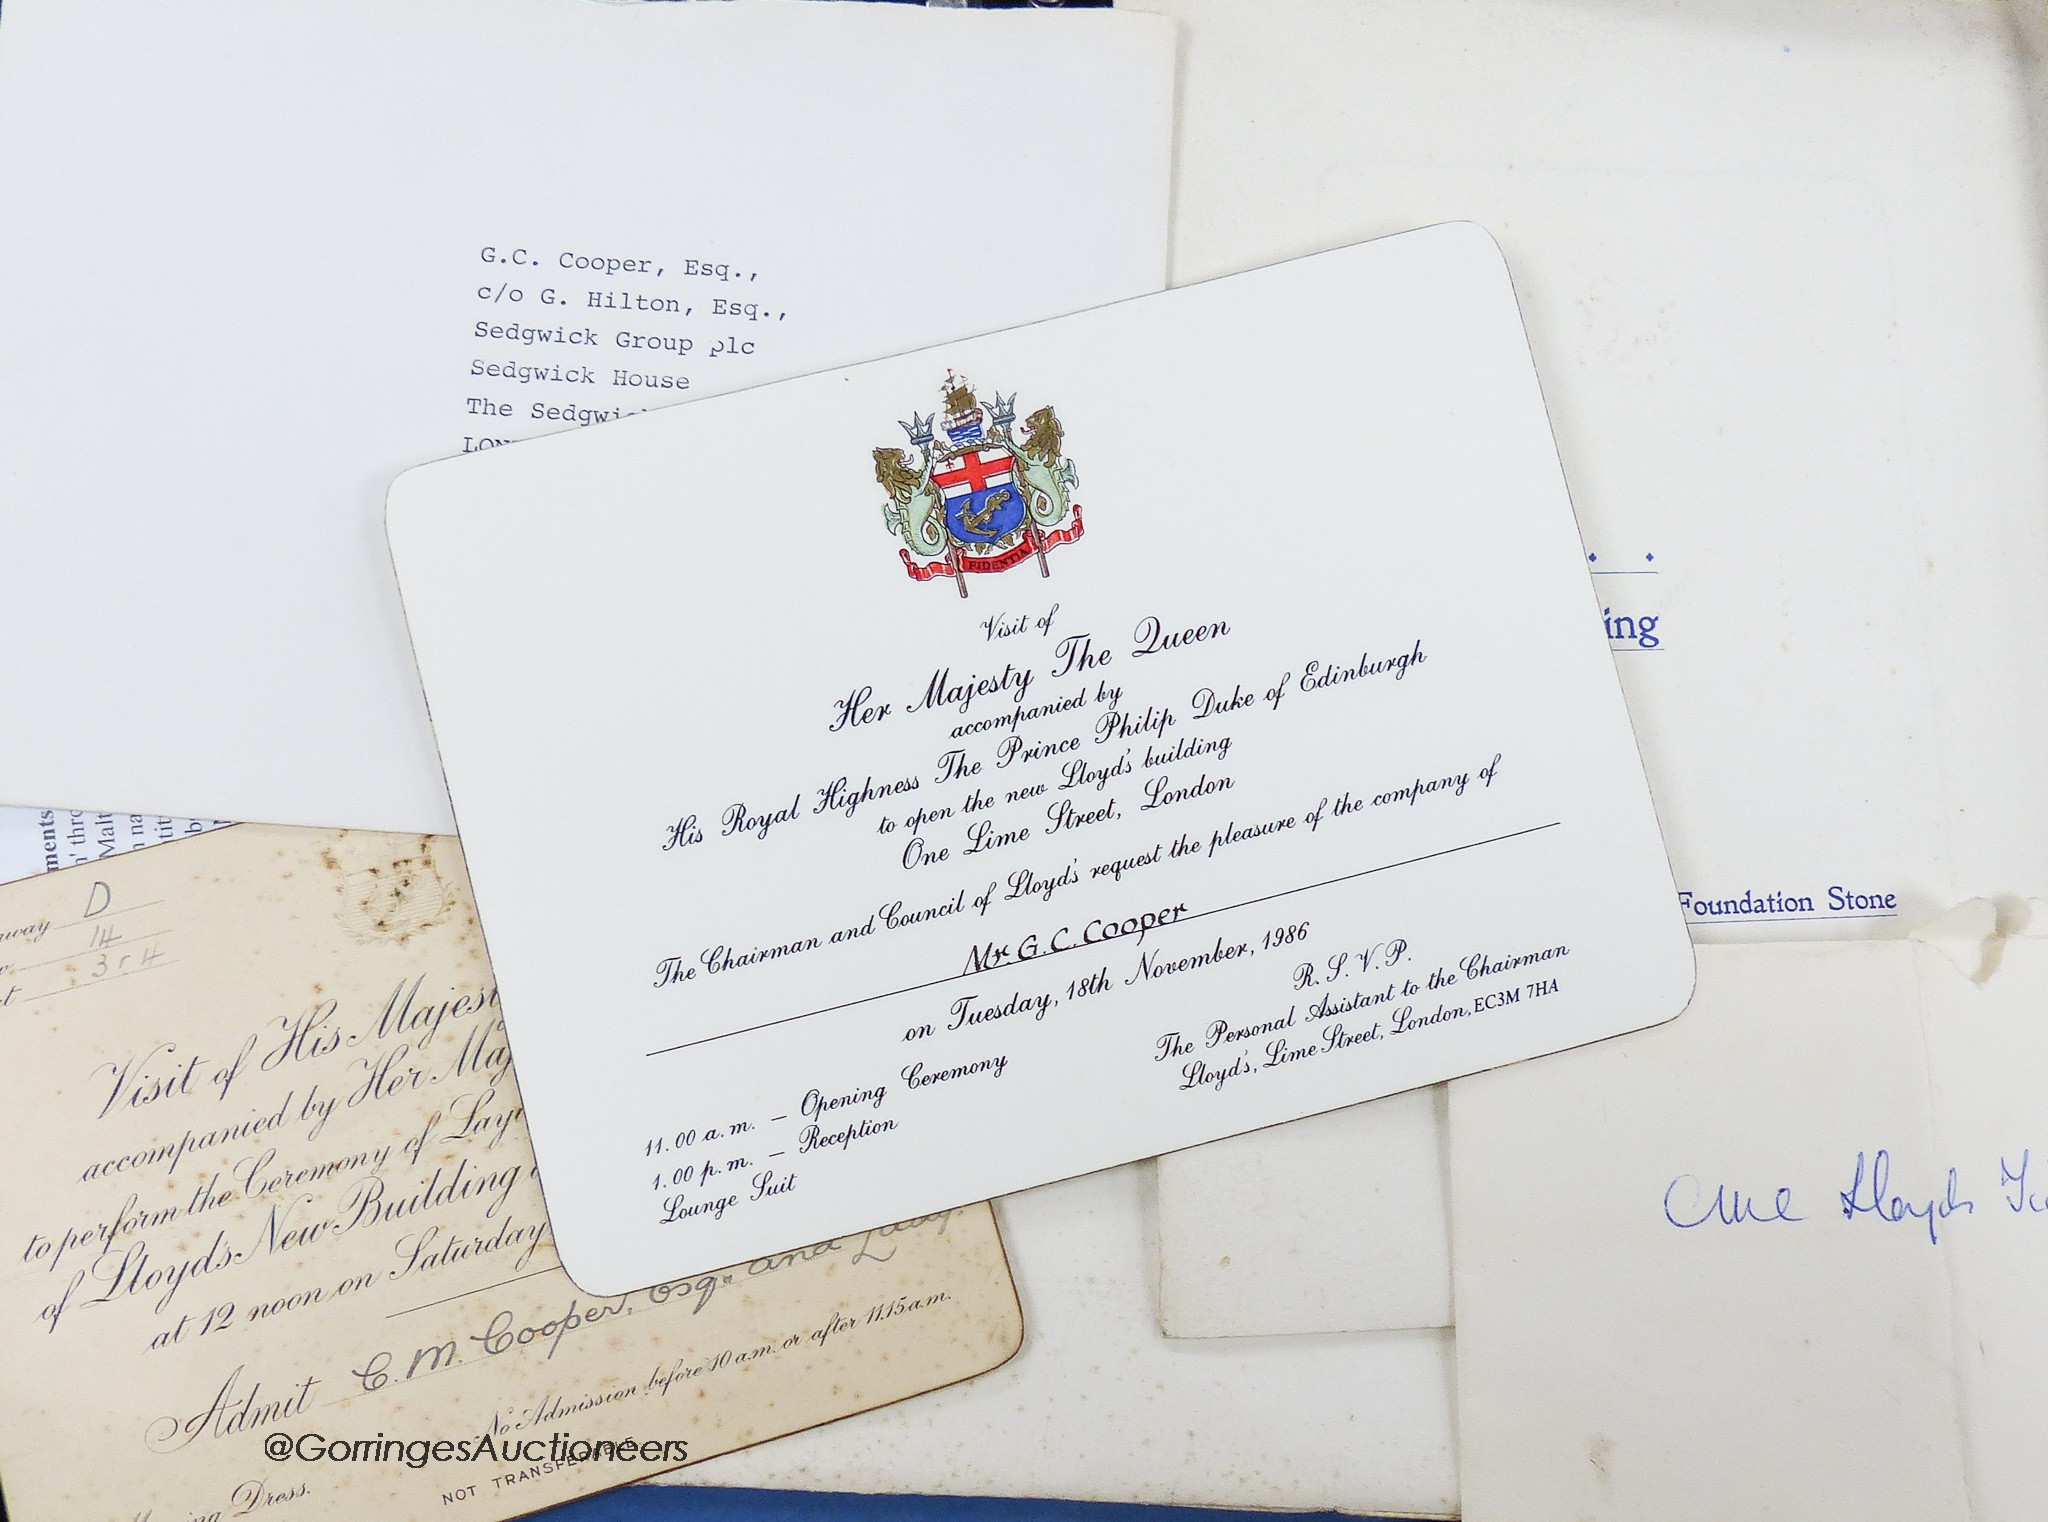 G.C. Cooper, Esq.,
c/o G. Hilton, Esq.,
Sedgwick Group plc
Sedgwick House
The
FIDENTIA
Visit of
Her Majesty The Queen
accompanied by
His Royal Highness The Prince Philip Duke of Edinburgh
to open the new Lloyd's building
One Lime Street, London
The Chairman and Council of Lloyd's request the pleasure of the company of
Mr. G. C. Cooper
on Tuesday, 18th November, 1986
R. S. V. P.
The Personal Assistant to the Chairman
Lloyd's, Lime Street, London, EC3M 7HA
11.00 a.m. – Opening Ceremony
1.00 p.m. – Reception
Lounge Suit
ing
Foundation Stone
Lloyds
D
14
3 & 4
Visit of His
accompanied by Her
to perform the Ceremony of
of Lloyd's New Building
at 12 noon on Saturday
Admit C. M. Cooper, Esq. and Lady.
No Admission before 10 a.m. or after 11.15 a.m.
NOT TRANSFERABLE
Dress.
@GorringesAuctioneers